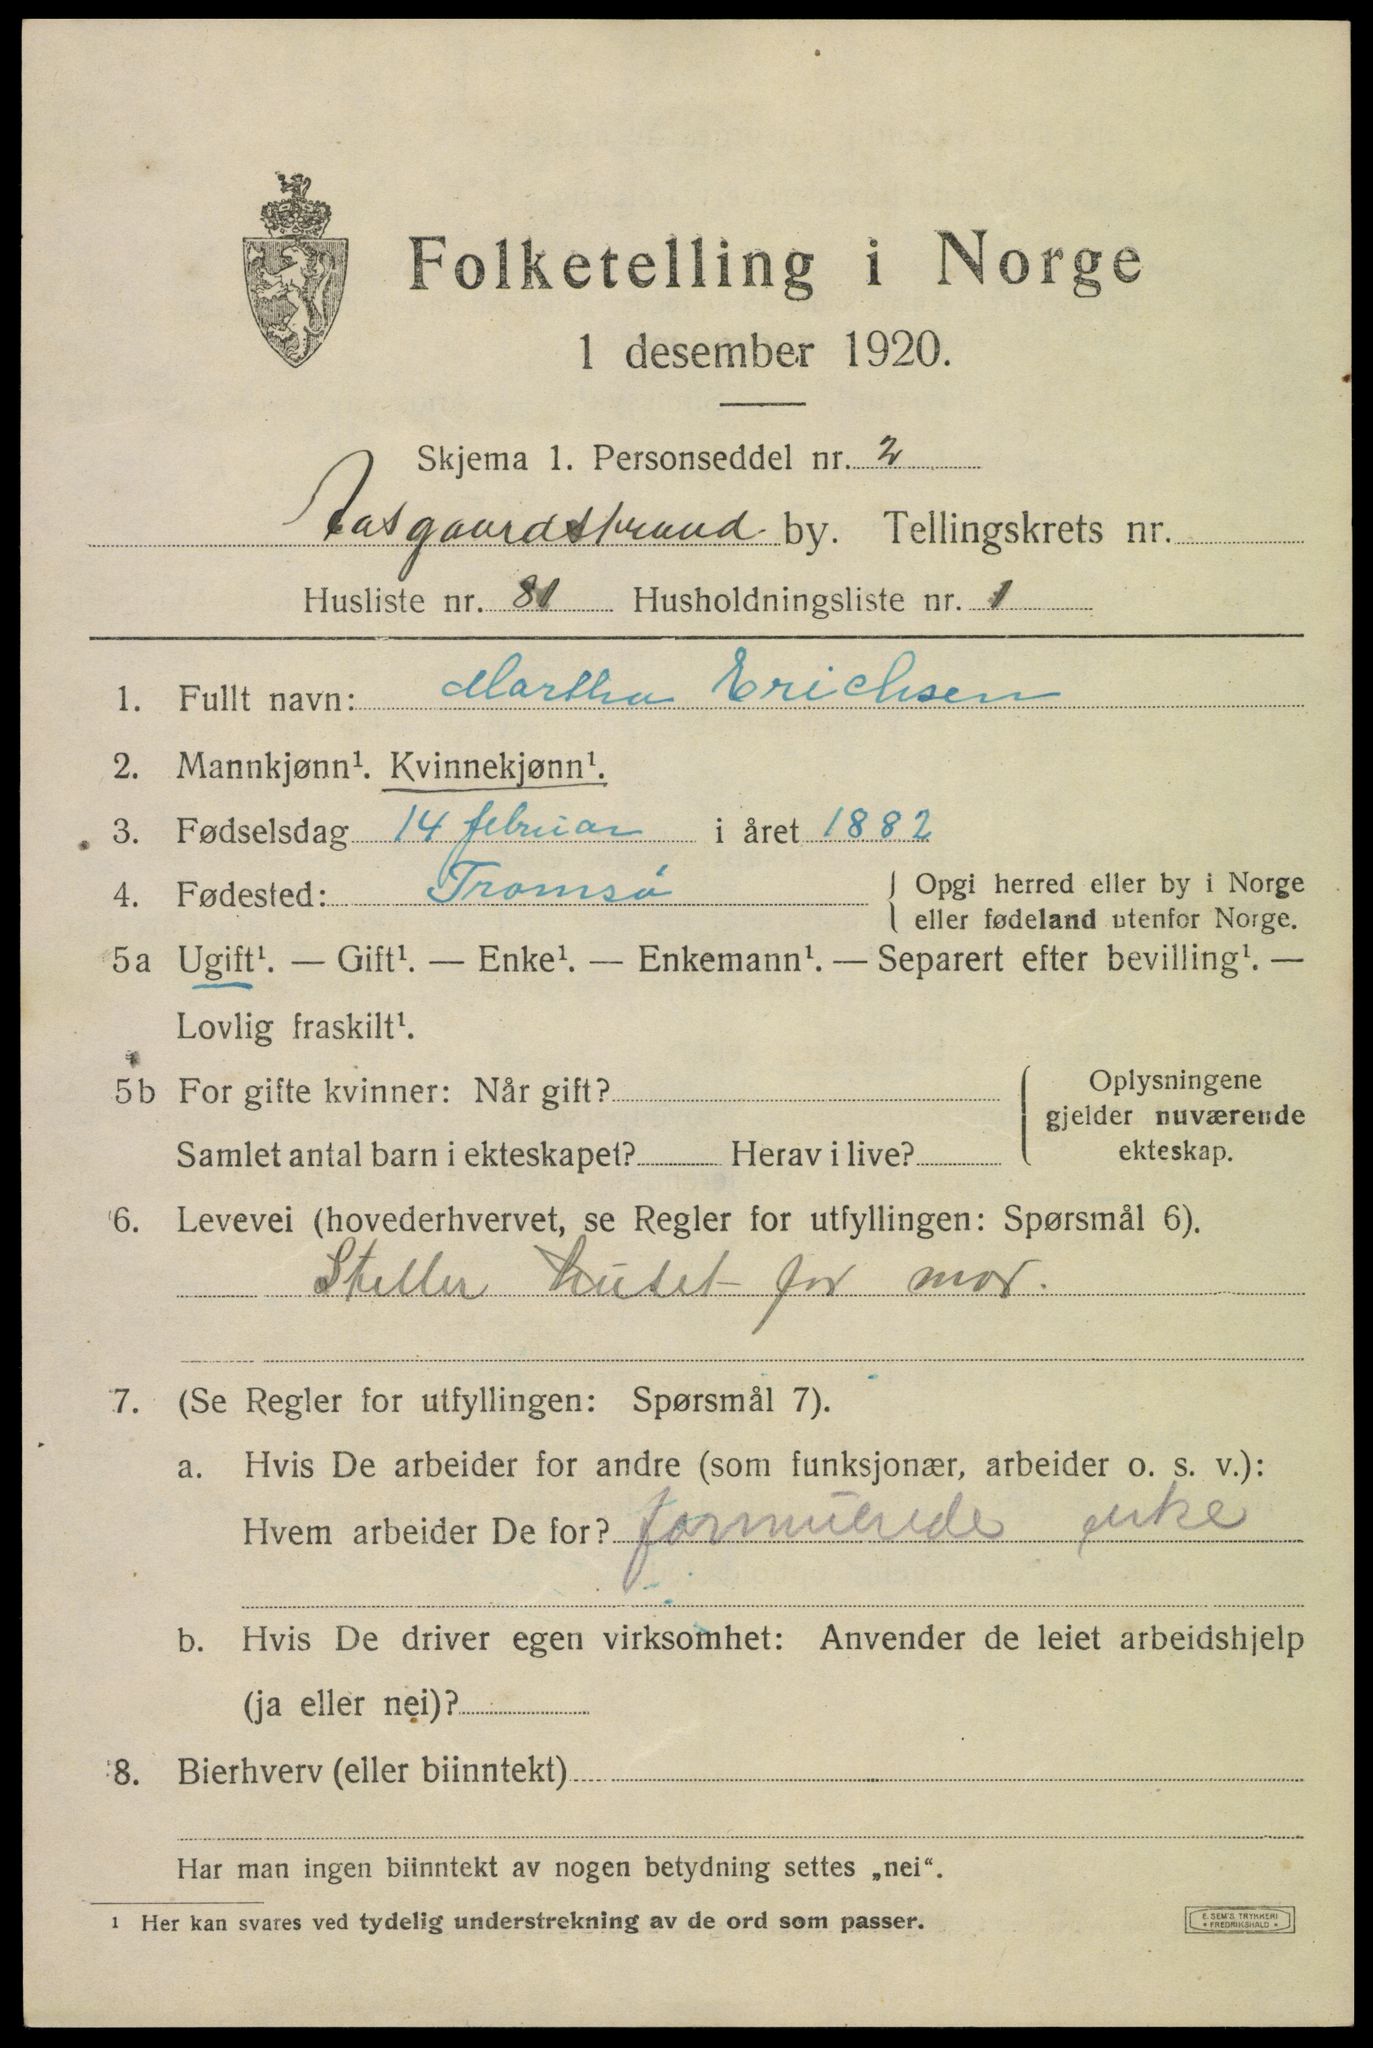 Folketelling i Norge
1 desember 1920.
Skjema 1. Personseddel nr. 2
Aasgaardstrand by. Tellingskrets nr.
Husliste nr. 81 Husholdningsliste nr. 1
1. Fullt navn: Martha Erichsen
2. Mannkjønn¹. Kvinnekjønn¹.
3. Fødselsdag 14 februar i året 1882
4. Fødested: Tromsø { Opgi herred eller by i Norge
eller fødeland utenfor Norge.
5a Ugift¹. — Gift¹. — Enke¹. — Enkemann¹. — Separert efter bevilling¹. —
Lovlig fraskilt¹.
5b For gifte kvinner: Når gift? { Oplysningene
gjelder nuværende
Samlet antal barn i ekteskapet? Herav i live? ekteskap.
6. Levevei (hovederhvervet, se Regler for utfyllingen: Spørsmål 6).
Steller huset for mor.
7. (Se Regler for utfyllingen: Spørsmål 7).
a. Hvis De arbeider for andre (som funksjonær, arbeider o. s. v.):
Hvem arbeider De for? formuende enke
b. Hvis De driver egen virksomhet: Anvender de leiet arbeidshjelp
(ja eller nei)?
8. Bierhverv (eller biinntekt)
Har man ingen biinntekt av nogen betydning settes „nei“.
¹ Her kan svares ved tydelig understrekning av de ord som passer.
E. SEM'S TRYKKERI
* FREDRIKSHALD *